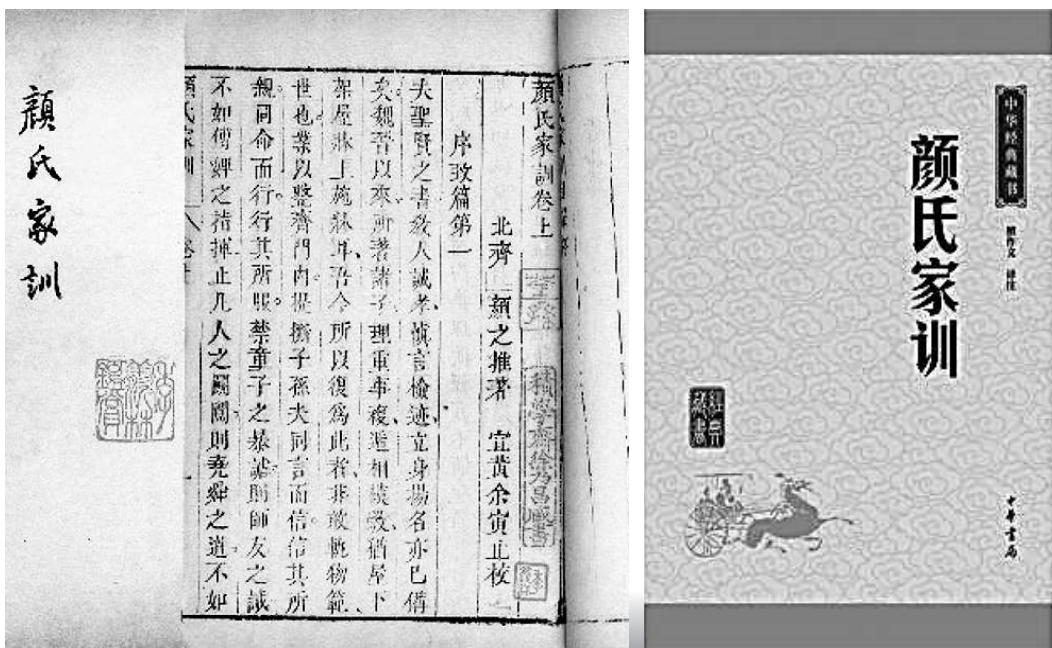 顏氏家訓
顏氏家訓卷上
積學齋徐乃昌藏書
北齊 顏之推著 宜黃余寅止校
序致篇第一
夫聖賢之書教人誠孝慎言檢迹立身揚名亦已備
矣魏晉以來所著諸子理重事複遞相模斆猶屋下
架屋牀上施牀耳吾今所以復爲此者非敢軌物範
世也業以整齊門內提撕子孫夫同言而信信其所
親同命而行行其所服禁童子之暴謔則師友之誡
不如傅婢之指揮止凡人之鬭鬩則堯舜之道不如
顏氏家訓
中华经典藏书
檀作文 译注
颜氏家训
中華書局